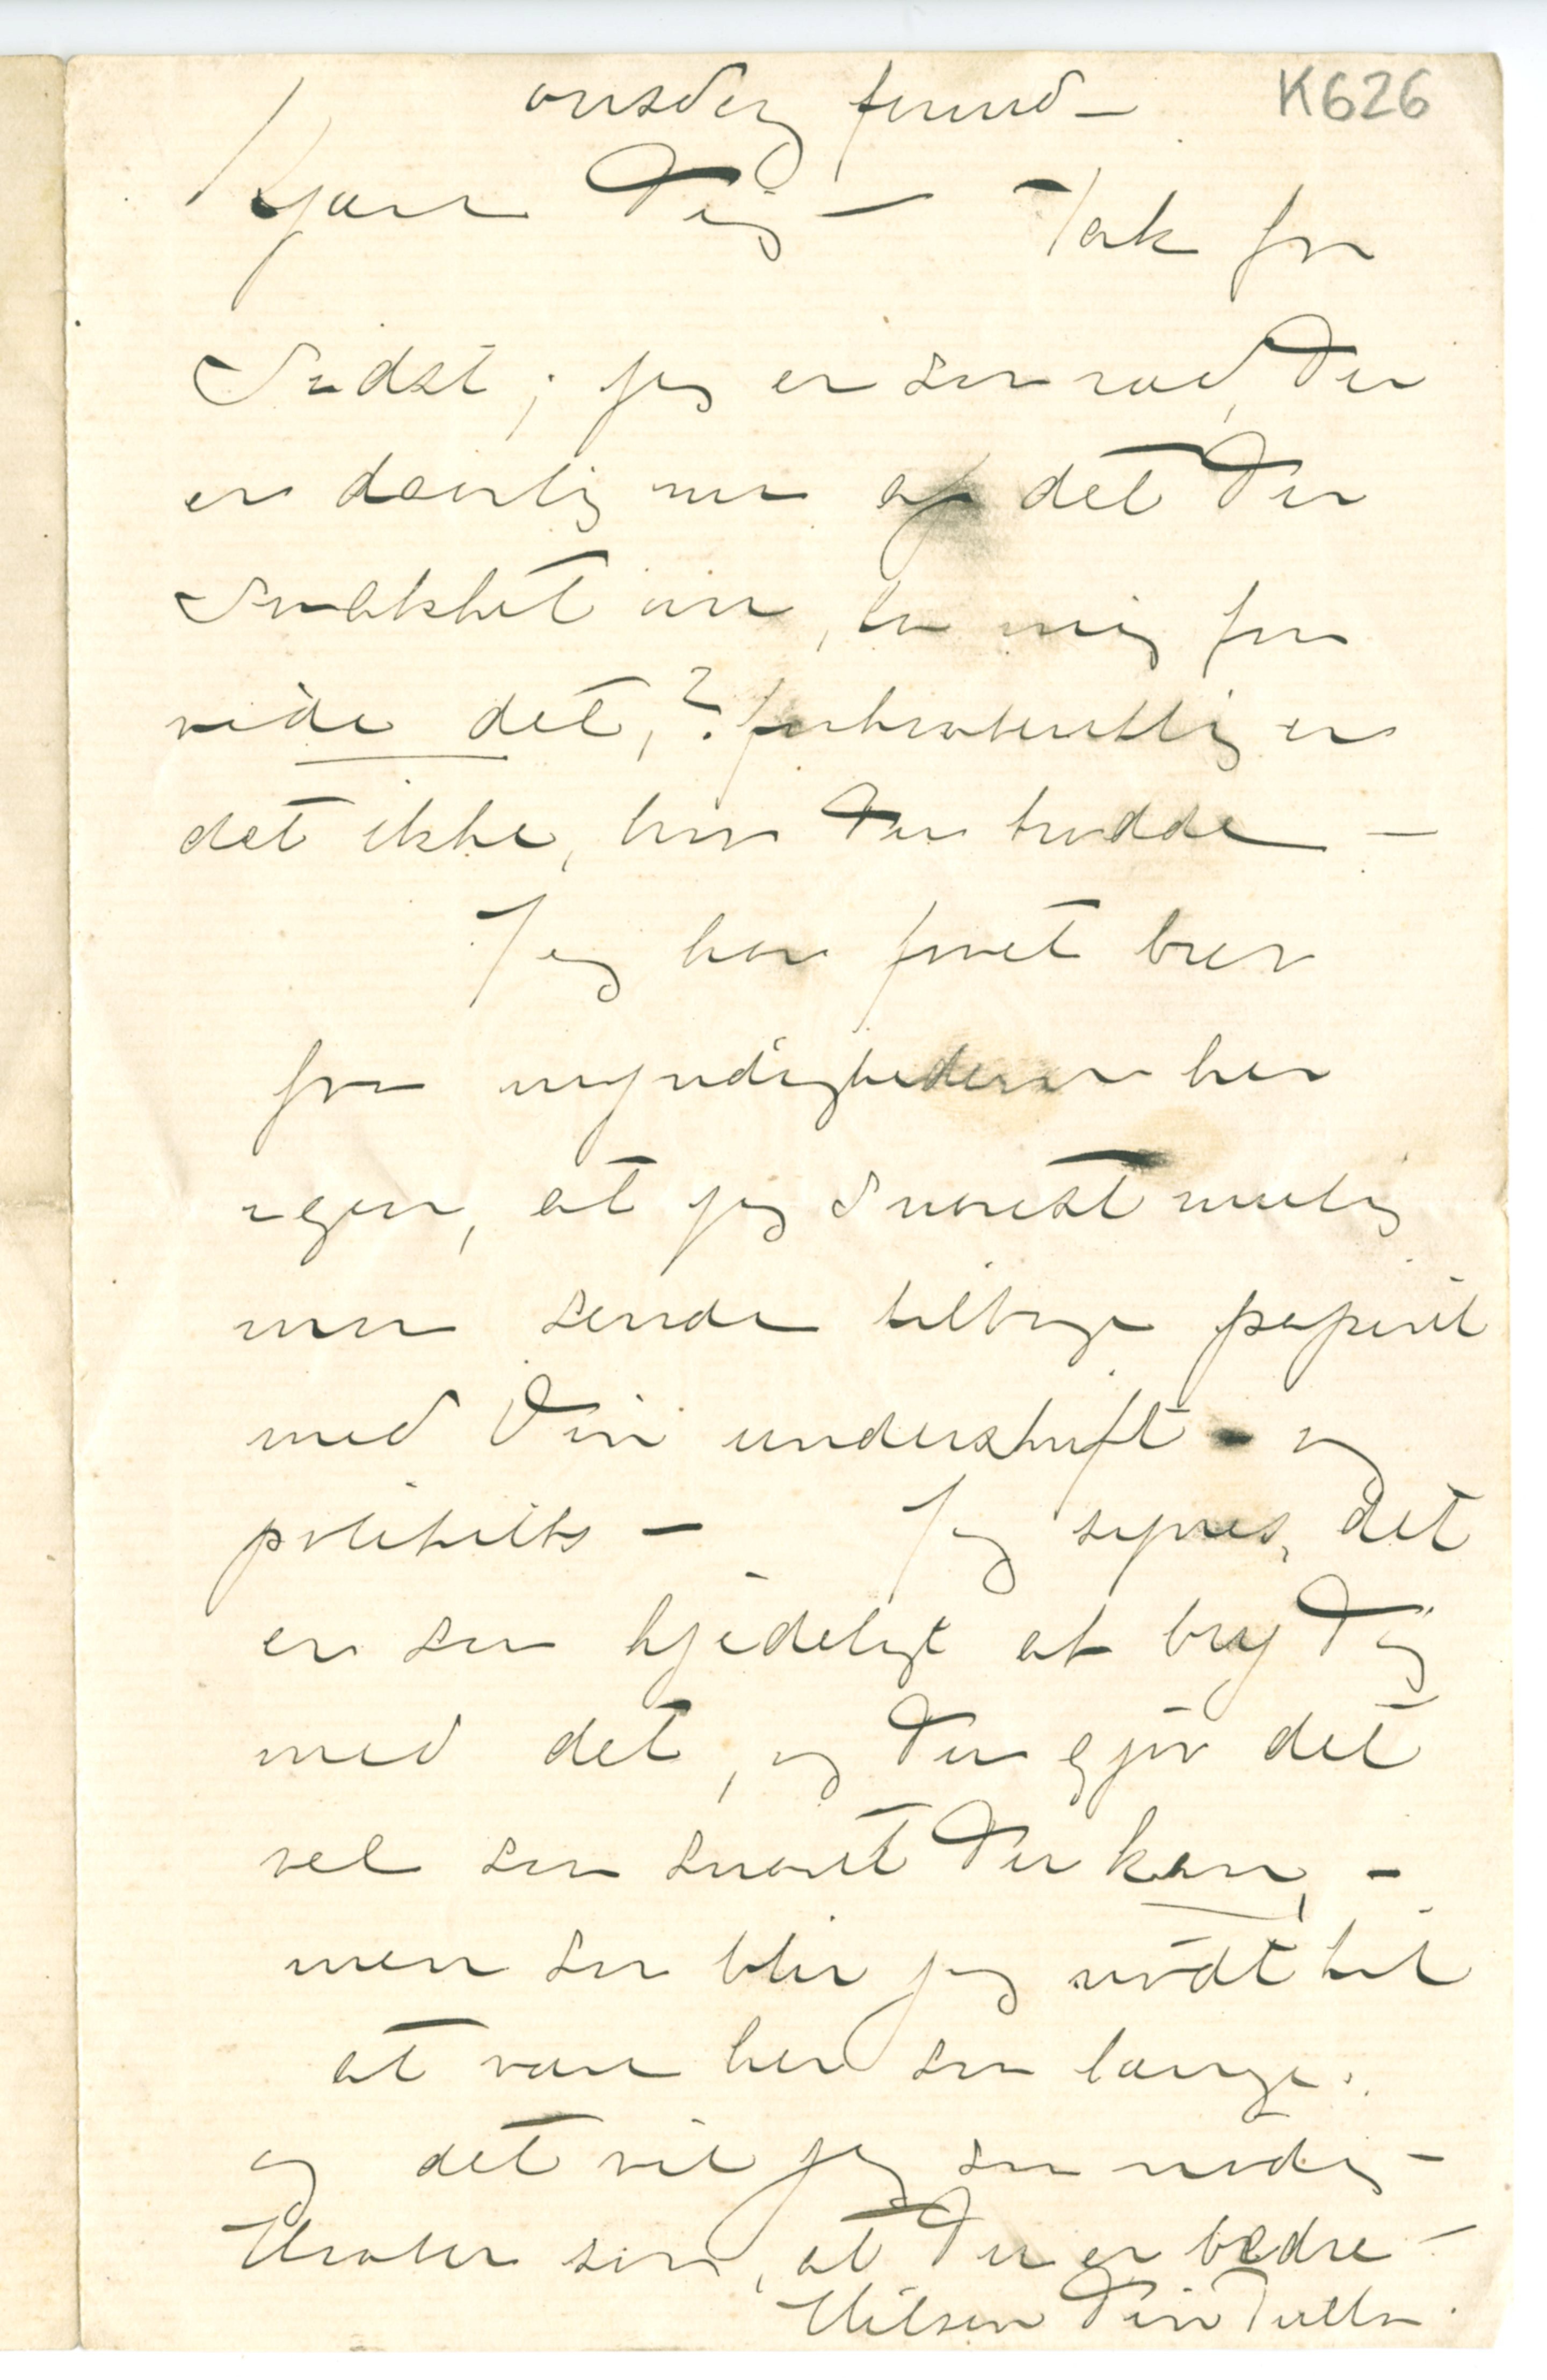 onsdag formd – K626
Kjære Dig – Tak for
Sidst; jeg er saa ræd, Du
er daarlig nu af det Du
Snakket om, la mig faa
vide det,? forhaabentlig er
det ikke, hva Du trodde –
Jeg har faaet brev
fra myndighederne her
igjen, at jeg Snarest mulig
maa sende tilbage papiret
med Din underskrift – og
politiets – Jeg synes, det
er saa kjedeligt at bry Dig
med det, og Du gjør det
vel saa snart Du kan, –
men saa blir jeg nødt til
at være her saa længe.
og det vil jeg saa nødig –
Haaber saa, at Du er bedre –
Hilsen Din Tulla.